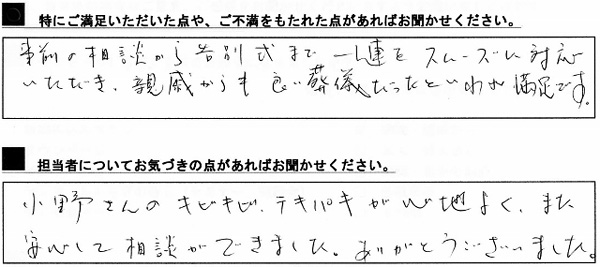 特にご満足いただいた点や、ご不満をもたれた点があればお聞かせください。
事前の相談から告別式まで一連をスムーズに対応
いただき、親戚からも良い葬儀だったといわれ満足です。
担当者についてお気づきの点があればお聞かせください。
小野さんのキビキビ、テキパキが心地よく、また
安心して相談ができました。ありがとうございました。